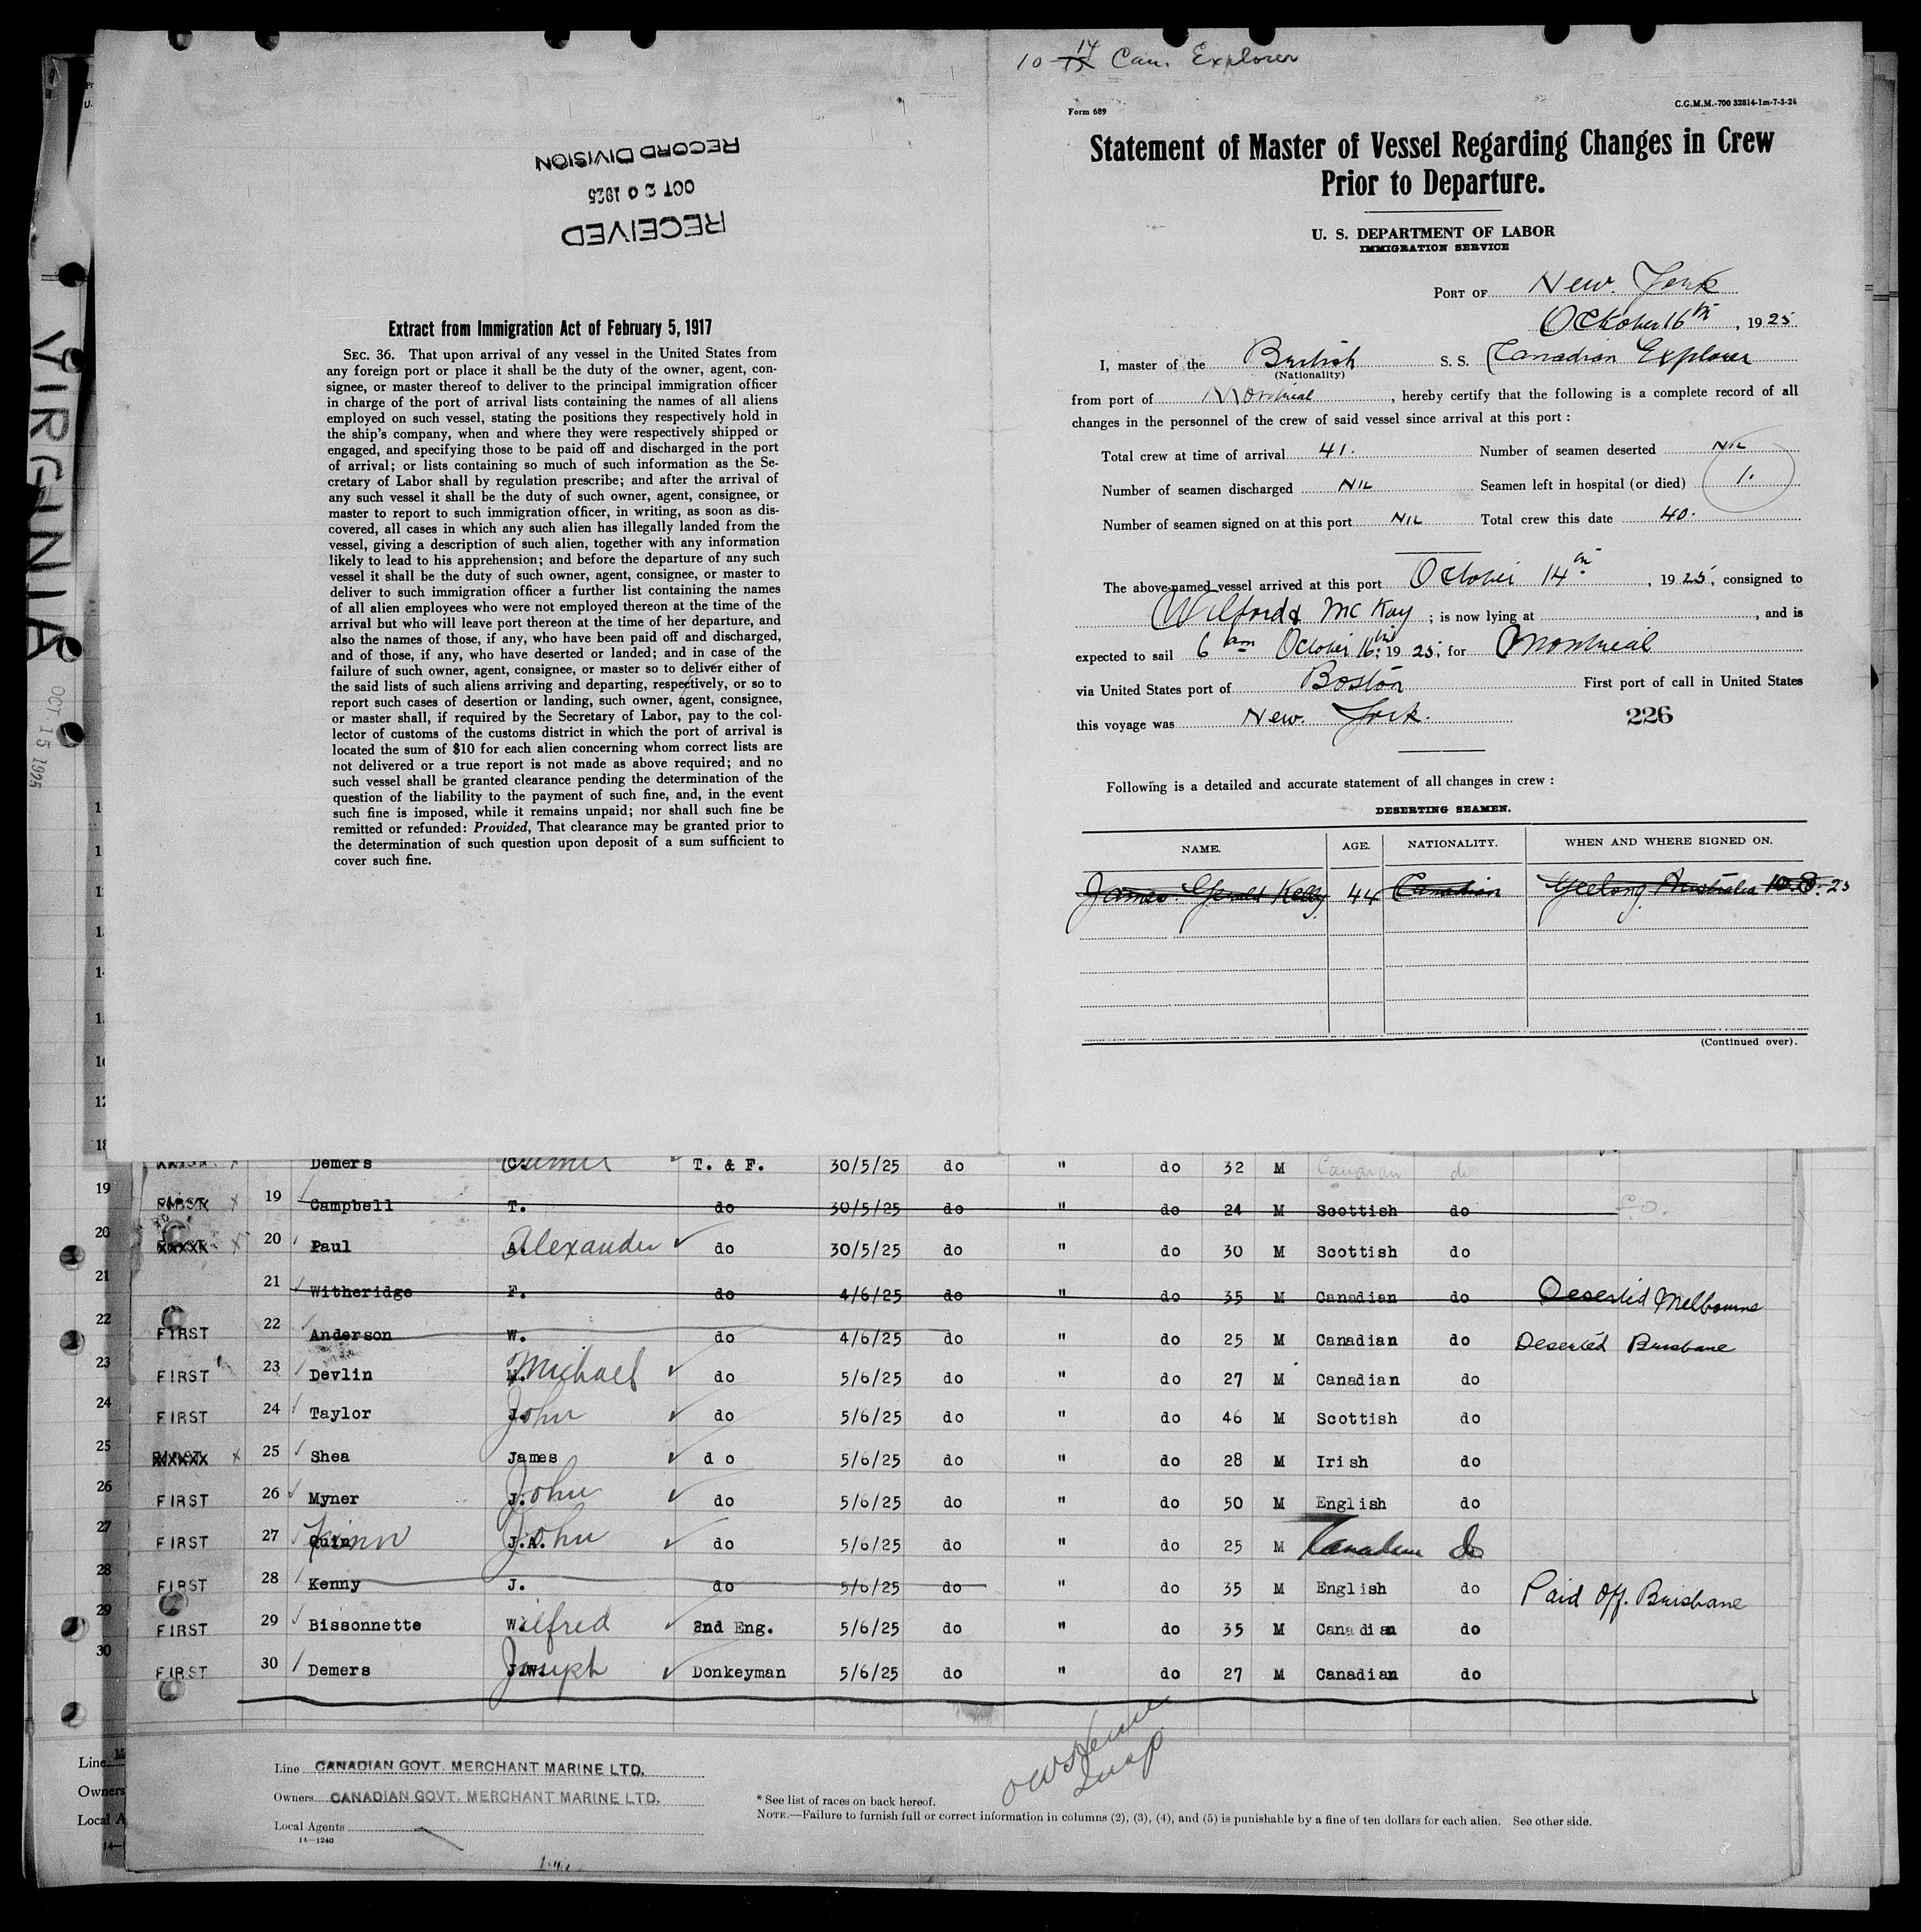 10-15 14 Can. Explorer
RECORD DIVISION
OCT 20 1925
RECEIVED
Extract from Immigration Act of February 5, 1917
SEC. 36. That upon arrival of any vessel in the United States from
any foreign port or place it shall be the duty of the owner, agent, con-
signee, or master thereof to deliver to the principal immigration officer
in charge of the port of arrival lists containing the names of all aliens
employed on such vessel, stating the positions they respectively hold in
the ship's company, when and where they were respectively shipped or
engaged, and specifying those to be paid off and discharged in the port
of arrival; or lists containing so much of such information as the Se-
cretary of Labor shall by regulation prescribe; and after the arrival of
any such vessel it shall be the duty of such owner, agent, consignee, or
master to report to such immigration officer, in writing, as soon as dis-
covered, all cases in which any such alien has illegally landed from the
vessel, giving a description of such alien, together with any information
likely to lead to his apprehension; and before the departure of any such
vessel it shall be the duty of such owner, agent, consignee, or master to
deliver to such immigration officer a further list containing the names
of all alien employees who were not employed thereon at the time of the
arrival but who will leave port thereon at the time of her departure, and
also the names of those, if any, who have been paid off and discharged,
and of those, if any, who have deserted or landed; and in case of the
failure of such owner, agent, consignee, or master so to deliver either of
the said lists of such aliens arriving and departing, respectively, or so to
report such cases of desertion or landing, such owner, agent, consignee,
or master shall, if required by the Secretary of Labor, pay to the col-
lector of customs of the customs district in which the port of arrival is
located the sum of $10 for each alien concerning whom correct lists are
not delivered or a true report is not made as above required; and no
such vessel shall be granted clearance pending the determination of the
question of the liability to the payment of such fine, and, in the event
such fine is imposed, while it remains unpaid; nor shall such fine be
remitted or refunded: Provided, That clearance may be granted prior to
the determination of such question upon deposit of a sum sufficient to
cover such fine.
Form 689
C.G.M.M.-700 32814-1m-7-3-24
Statement of Master of Vessel Regarding Changes in Crew
Prior to Departure.
U. S. DEPARTMENT OF LABOR
IMMIGRATION SERVICE
PORT OF New York
October 16th, 1925
I, master of the British S. S. Canadian Explorer
(Nationality)
from port of Montreal, hereby certify that the following is a complete record of all
changes in the personnel of the crew of said vessel since arrival at this port:
Total crew at time of arrival 41. Number of seamen deserted NIL
Number of seamen discharged NIL Seamen left in hospital (or died) 1.
Number of seamen signed on at this port NIL Total crew this date 40.
The above-named vessel arrived at this port October 14th, 1925, consigned to
Wilford & McKay; is now lying at , and is
expected to sail 6 am October 16th 1925; for Montreal
via United States port of Boston First port of call in United States
this voyage was New York. 226
Following is a detailed and accurate statement of all changes in crew:
DESERTING SEAMEN.
NAME. AGE. NATIONALITY. WHEN AND WHERE SIGNED ON.
James Gerald Kelly 44 Canadian Geelong Australia 10.8.25
(Continued over).
VIRGINIA
OCT 15 1925
Demers C. T. & F. 30/5/25 do " do 32 M Canadian do
19 FIRST 19 Campbell T. do 30/5/25 do " do 24 M Scottish do
20 20 Paul A. Alexander do 30/5/25 do " do 30 M Scottish do
21 21 Witheridge F. do 4/6/25 do " do 35 M Canadian do Deserted Melbourne
22 FIRST 22 Anderson W. do 4/6/25 do " do 25 M Canadian do Deserted Brisbane
23 FIRST 23 Devlin M. Michael do 5/6/25 do " do 27 M Canadian do
24 FIRST 24 Taylor John do 5/6/25 do " do 46 M Scottish do
25 25 Shea James do 5/6/25 do " do 28 M Irish do
26 FIRST 26 Myner J. John do 5/6/25 do " do 50 M English do
27 FIRST 27 Quinn J.A. John do 5/6/25 do " do 25 M Canadian do
28 FIRST 28 Kenny J. do 5/6/25 do " do 35 M English do Paid Off. Brisbane
29 FIRST 29 Bissonnette Wilfred 2nd Eng. 5/6/25 do " do 35 M Canadian do
30 FIRST 30 Demers J.W. Joseph Donkeyman 5/6/25 do " do 27 M Canadian do
Line CANADIAN GOVT. MERCHANT MARINE LTD.
Owners CANADIAN GOVT. MERCHANT MARINE LTD.
Local Agents
14-1240
* See list of races on back hereof.
NOTE.—Failure to furnish full or correct information in columns (2), (3), (4), and (5) is punishable by a fine of ten dollars for each alien. See other side.
Line
Owners
Local A